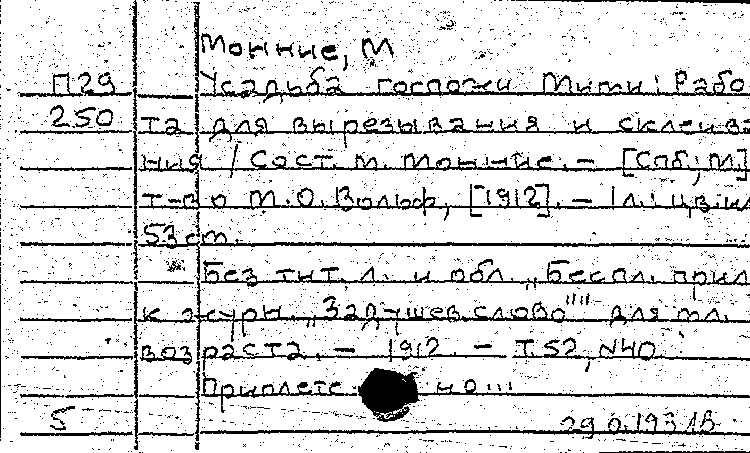 Монние, М
П29 Усадьба госпожи Мити: Рабо
250 та для вырезывания и склеива
ния / Сост. М. Монние. – [Спб; М]
т-во М.О. Вольф, [1912]. – 1 л.: цв. ил
53 см.
Без тит. л. и обл. „Беспл. прил
к журн. „Задушев. слово"" для мл.
возраста. – 1912. – Т. 52, N40
Приплете но...
5